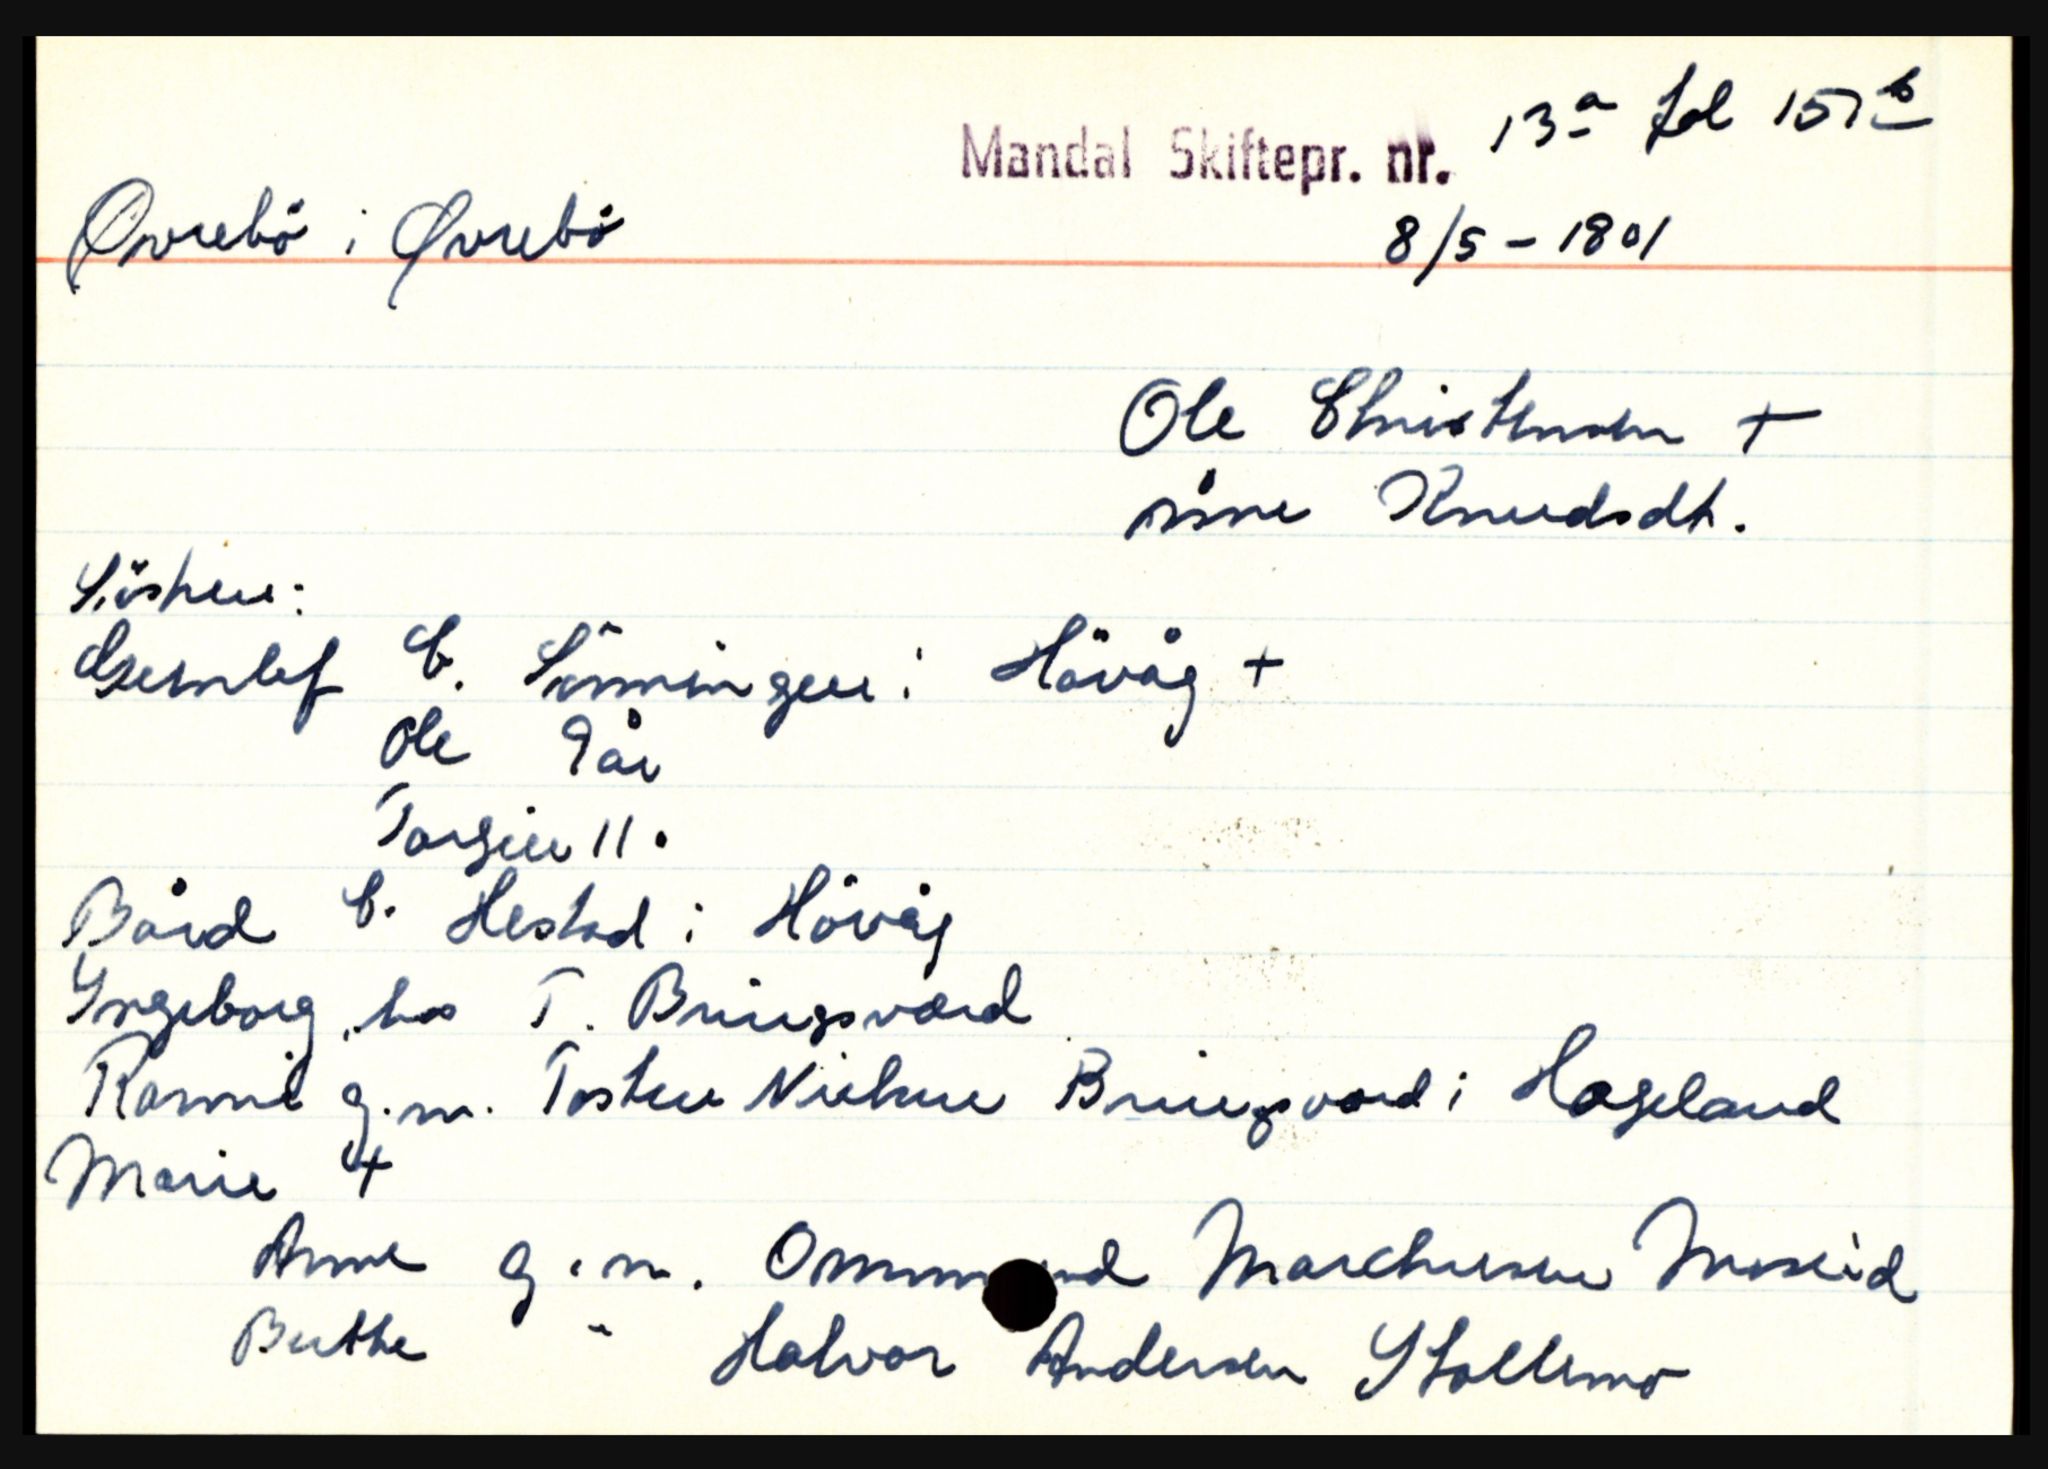 Mandal Skiftepr. nr. 13a fol 157b
Øvrebö i Øvrebö
8/5 - 1801
Ole Christensen +
Åsne Knudsdt.
Sösken:
Gunlef C. i Hövåg +
Ole 9 år
Torgier 11 "
Bård C. Hestad i Hövåg
Yngeborg, hos T. Bringsværd
Ranni g.m. Tosten Nielsen Bringsværd i Hægeland
Marie +
Anne g.m. Ommund Marchussen Moseid
Berthe " Halvor Andersen Stallemo